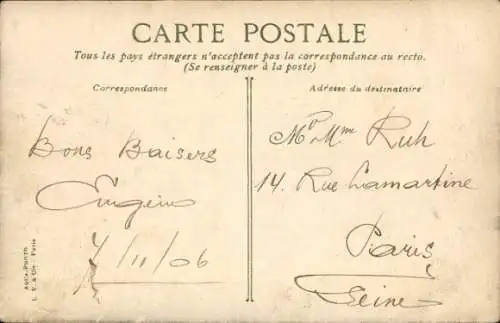 CARTE POSTALE
Tous les pays étrangers n'acceptent pas la correspondance au recto.
(Se renseigner à la poste)
Correspondance
Adresse du destinataire
Bons Baisers
4/11/06
Mr Mme Ruh
14. Rue Lamartine
Paris
Seine
L. V. & Cie - Paris